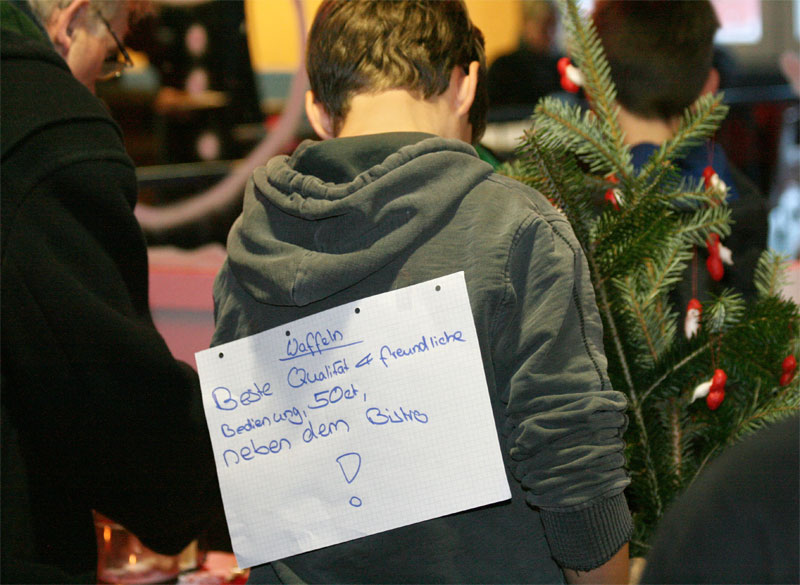 Waffeln
Beste Qualität & freundliche
Bedienung, 50ct,
neben dem Bistro
!